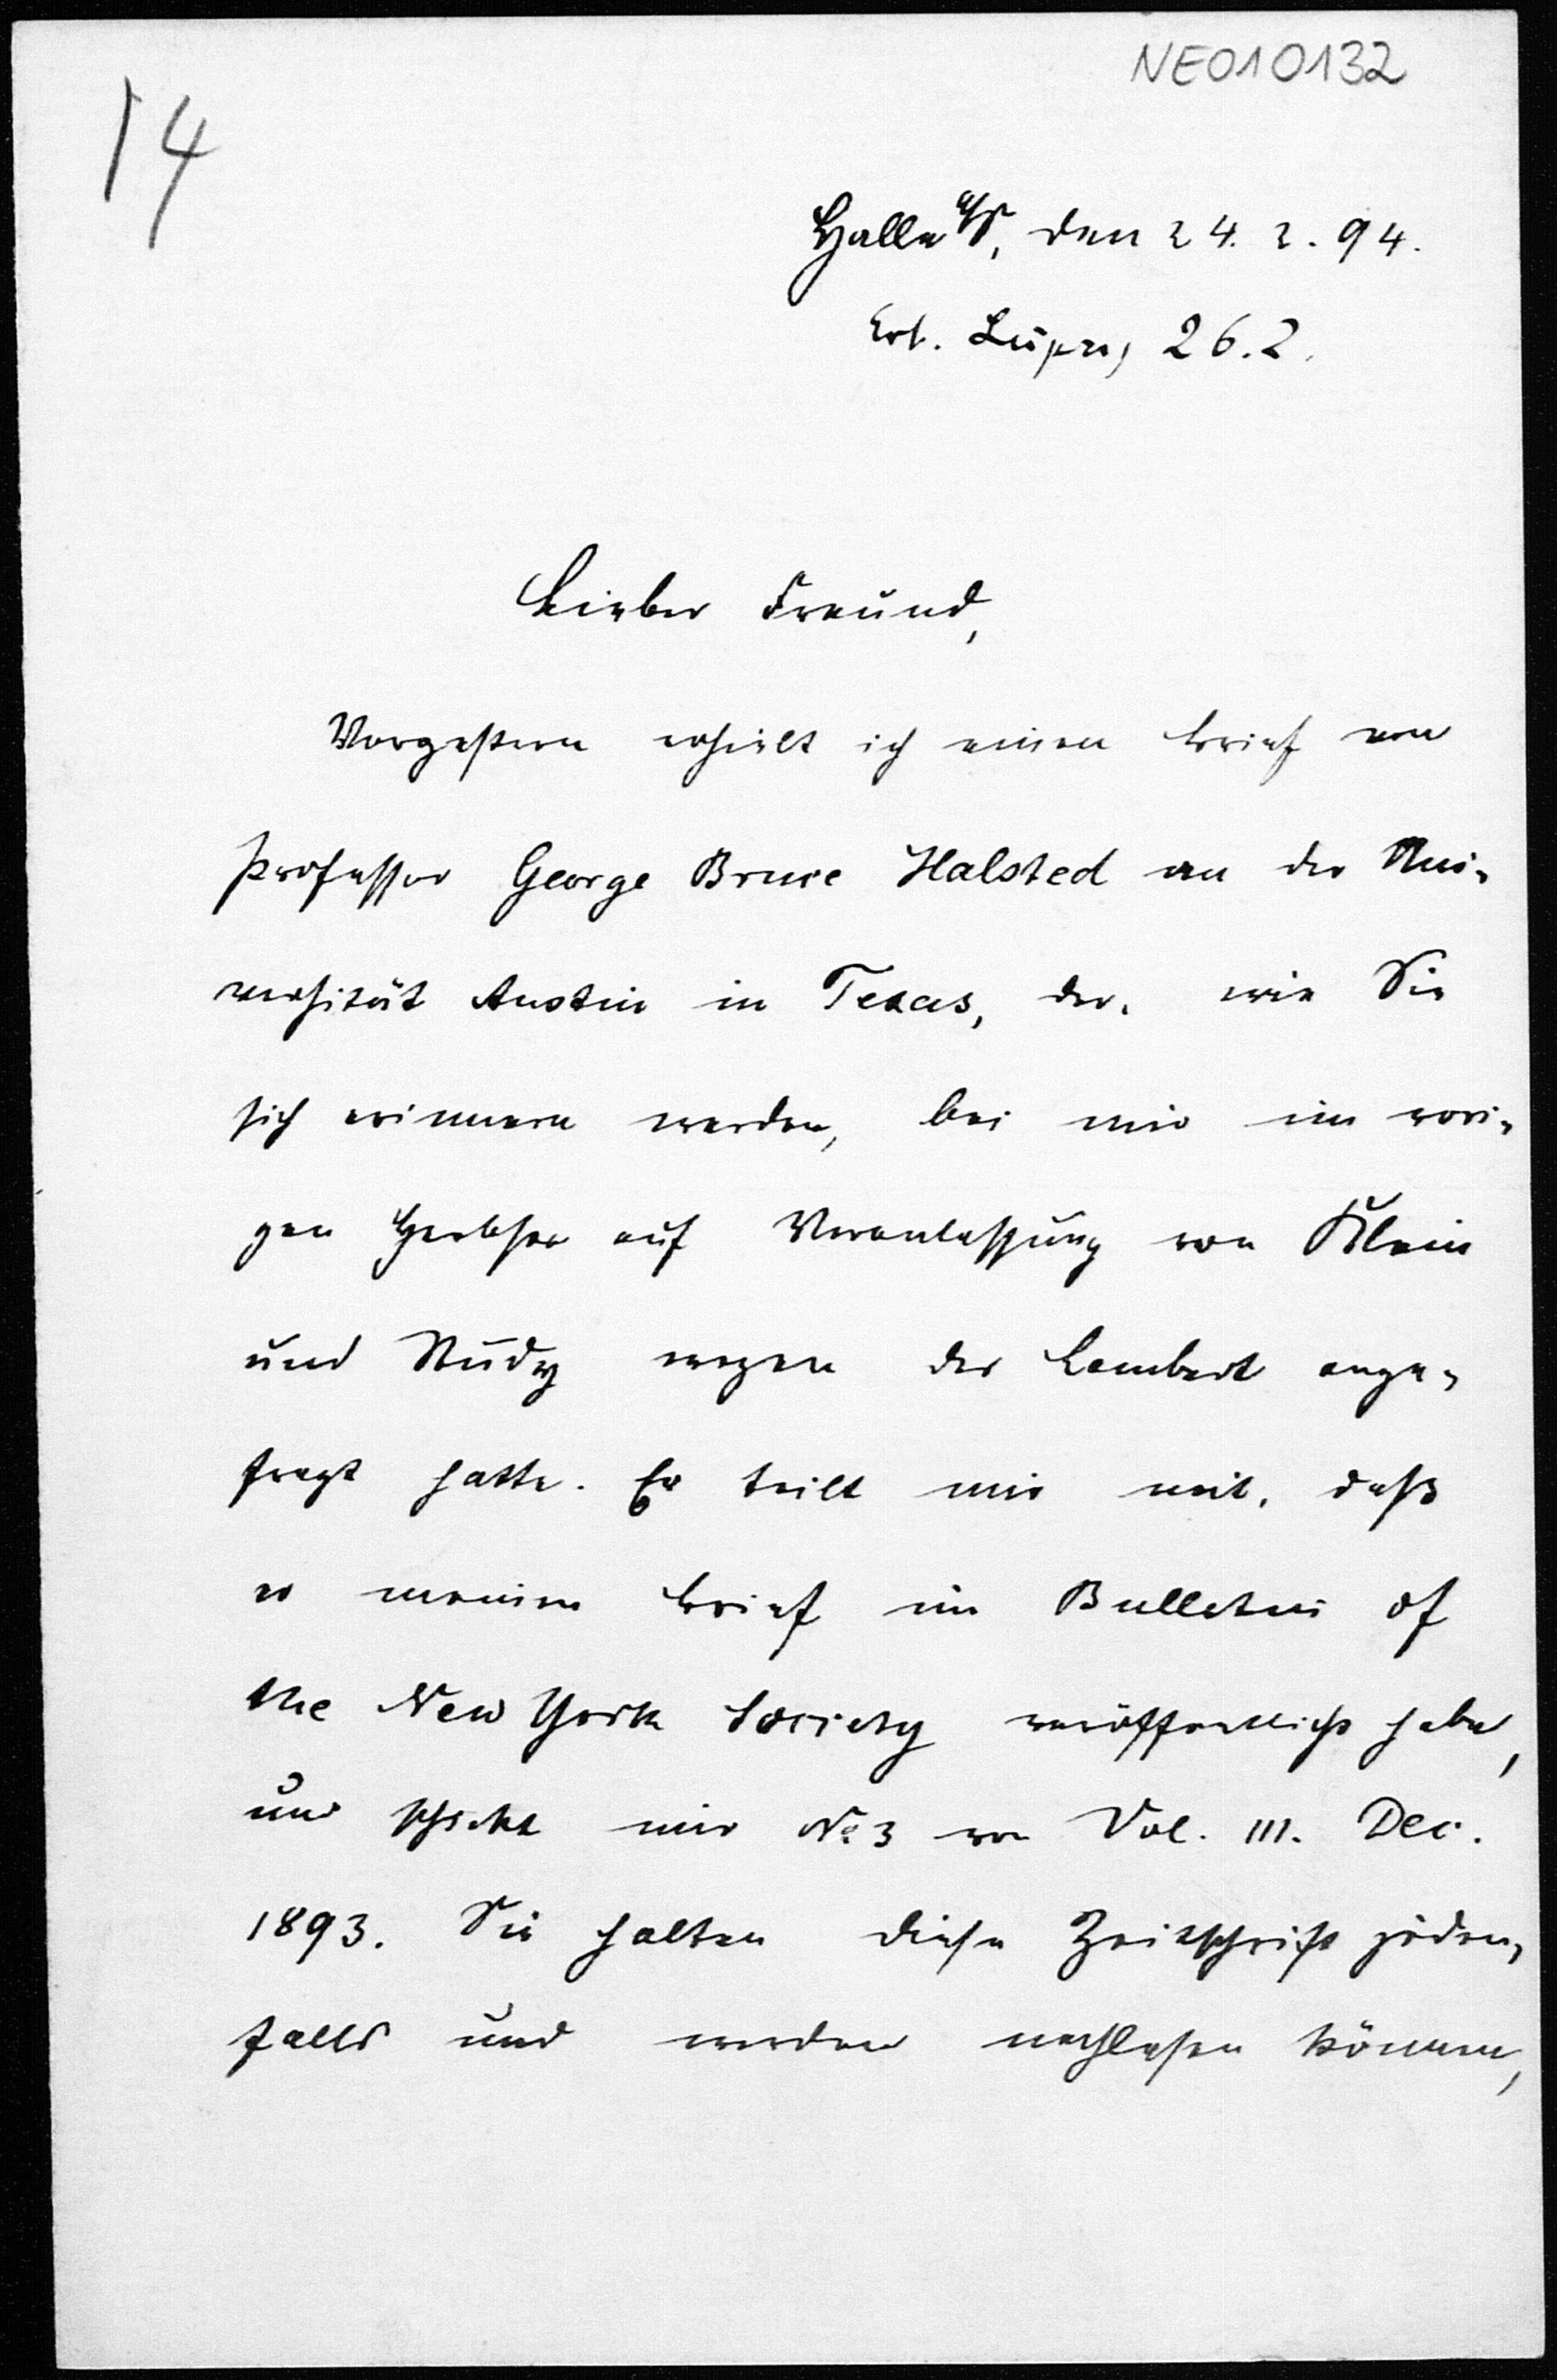 NE010132
14
Halle a/S, den 24. 2. 94.
Erh. Leipzig 26.2.
Lieber Freund,
Vorgestern erhielt ich einen Brief von
Professor George Bruce Halsted an der Uni-
versität Austin in Texas, der, wie Sie
sich erinnern werden, bei mir im vori-
gen Herbste auf Veranlassung von Klein
und Study wegen der Lambert ange-
fragt hatte. Er teilt mir mit, daß
er meinen Brief im Bulletin of
the New York Society veröffentlicht habe,
und schickt mir No 3 von Vol. III. Dec.
1893. Sie halten diese Zeitschrift jeden-
falls und werden nachlesen können,